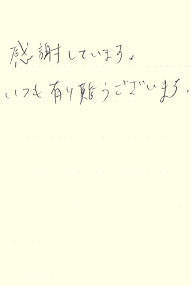 感謝しています。
いつも有り難うございます。